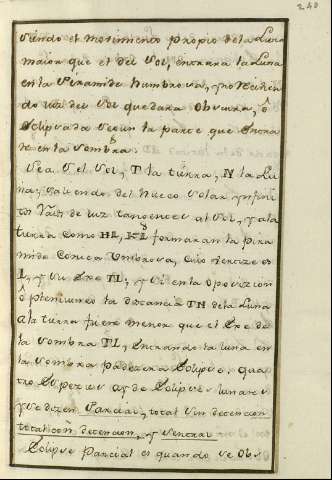 240
siendo el movimiento propio de la Luna
maior que el del Sol, entrara la Luna
en la Piramide humbrosa, y no recivien
do luz del Sol quedara obscura, ô
Eclipsada segun la parte que entra
re en la sombra.
Sea S el Sol, T la tierra, N la Lu
na, saliendo del hueco solar
de luz tangentes al Sol, y a la
tierra como HL, formaran la pira
mide Conica Umbrosa, cuio vertize es
L, y su Exe TL, y si en la oposizion
ô plenilunio la distancia TN de la Luna
a la tierra fuere menor que el Exe de
la sombra TL, entrando la luna en
la sombra padezera Eclipse: qua
tro especies ay de Eclipses lunares
y se dizen Parcial, total sin detencion
total con detencion, y Sentral
Eclipse parcial es quando se obs